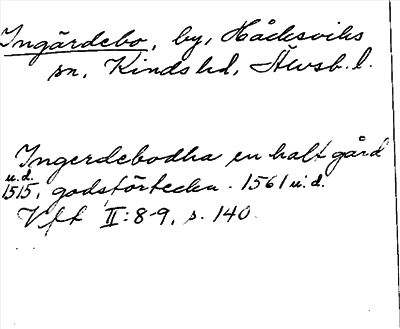 Ingärdebo, by, Håcksviks
sn, Kinds hd, Älvsb. l.
Ingerdebodha en halt gård
u.d.
1515, godsförteckn. 1561 u.d.
Vft II: 8-9, s. 140.